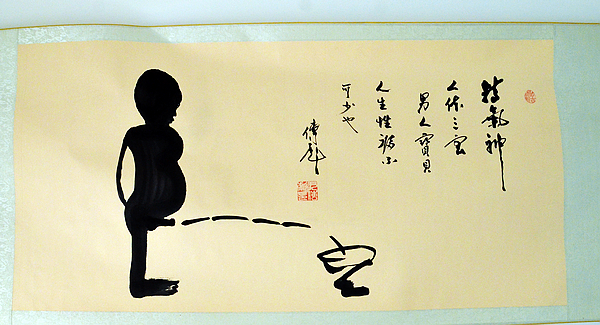 精氣神
人体三宝
男人寶貝
人生性福不
可少也